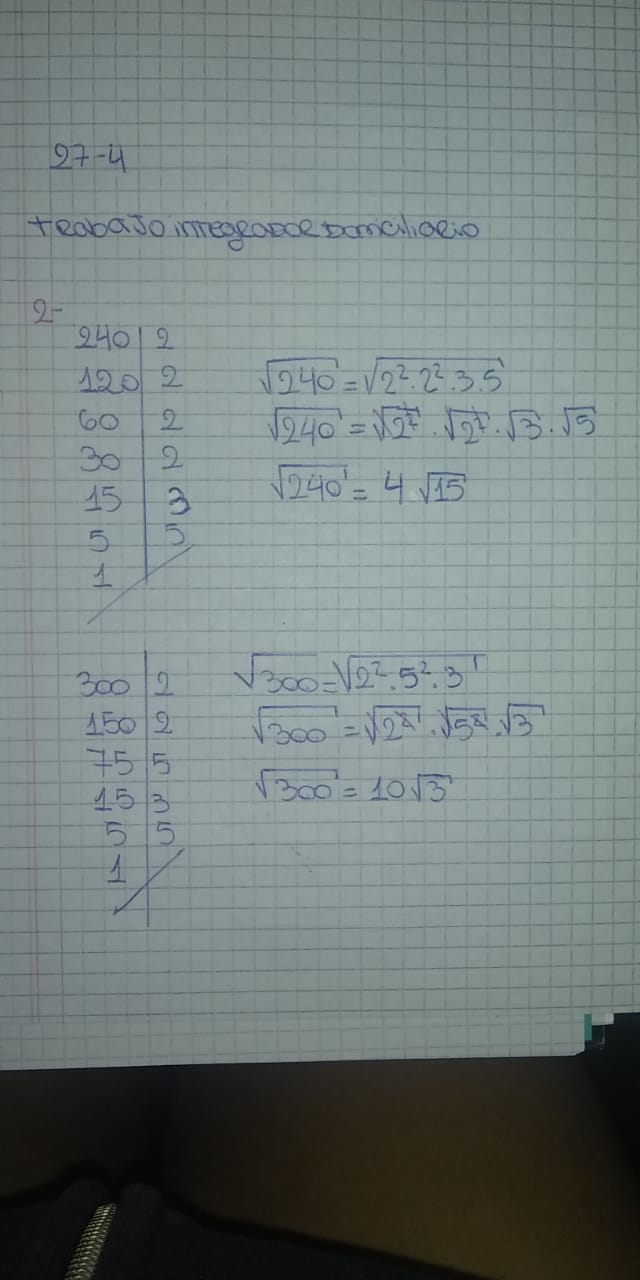 27-4
trabajo integrador Domiciliario
2-
240 | 2
120 | 2
60 | 2
30 | 2
15 | 3
5 | 5
1
√240 = √2².2².3.5
√240 = √2² . √2² . √3 . √5
√240 = 4 √15
300 | 2
150 | 2
75 | 5
15 | 3
5 | 5
1
√300 = √2².5².3
√300 = √2² . √5² . √3
√300 = 10√3